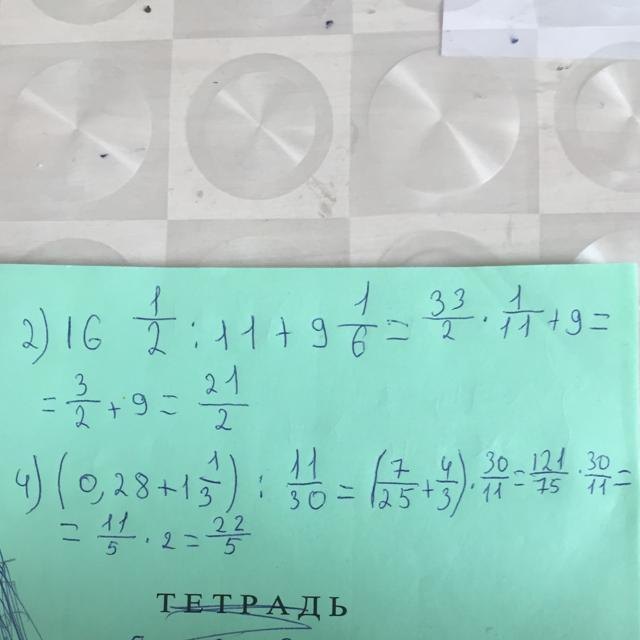 2) 16 1/2 : 11 + 9 1/6 = 33/2 · 1/11 + 9 =
= 3/2 + 9 = 21/2
4) (0,28 + 1 1/3) : 11/30 = (7/25 + 4/3) · 30/11 = 121/75 · 30/11 =
= 11/5 · 2 = 22/5
ТЕТРАДЬ